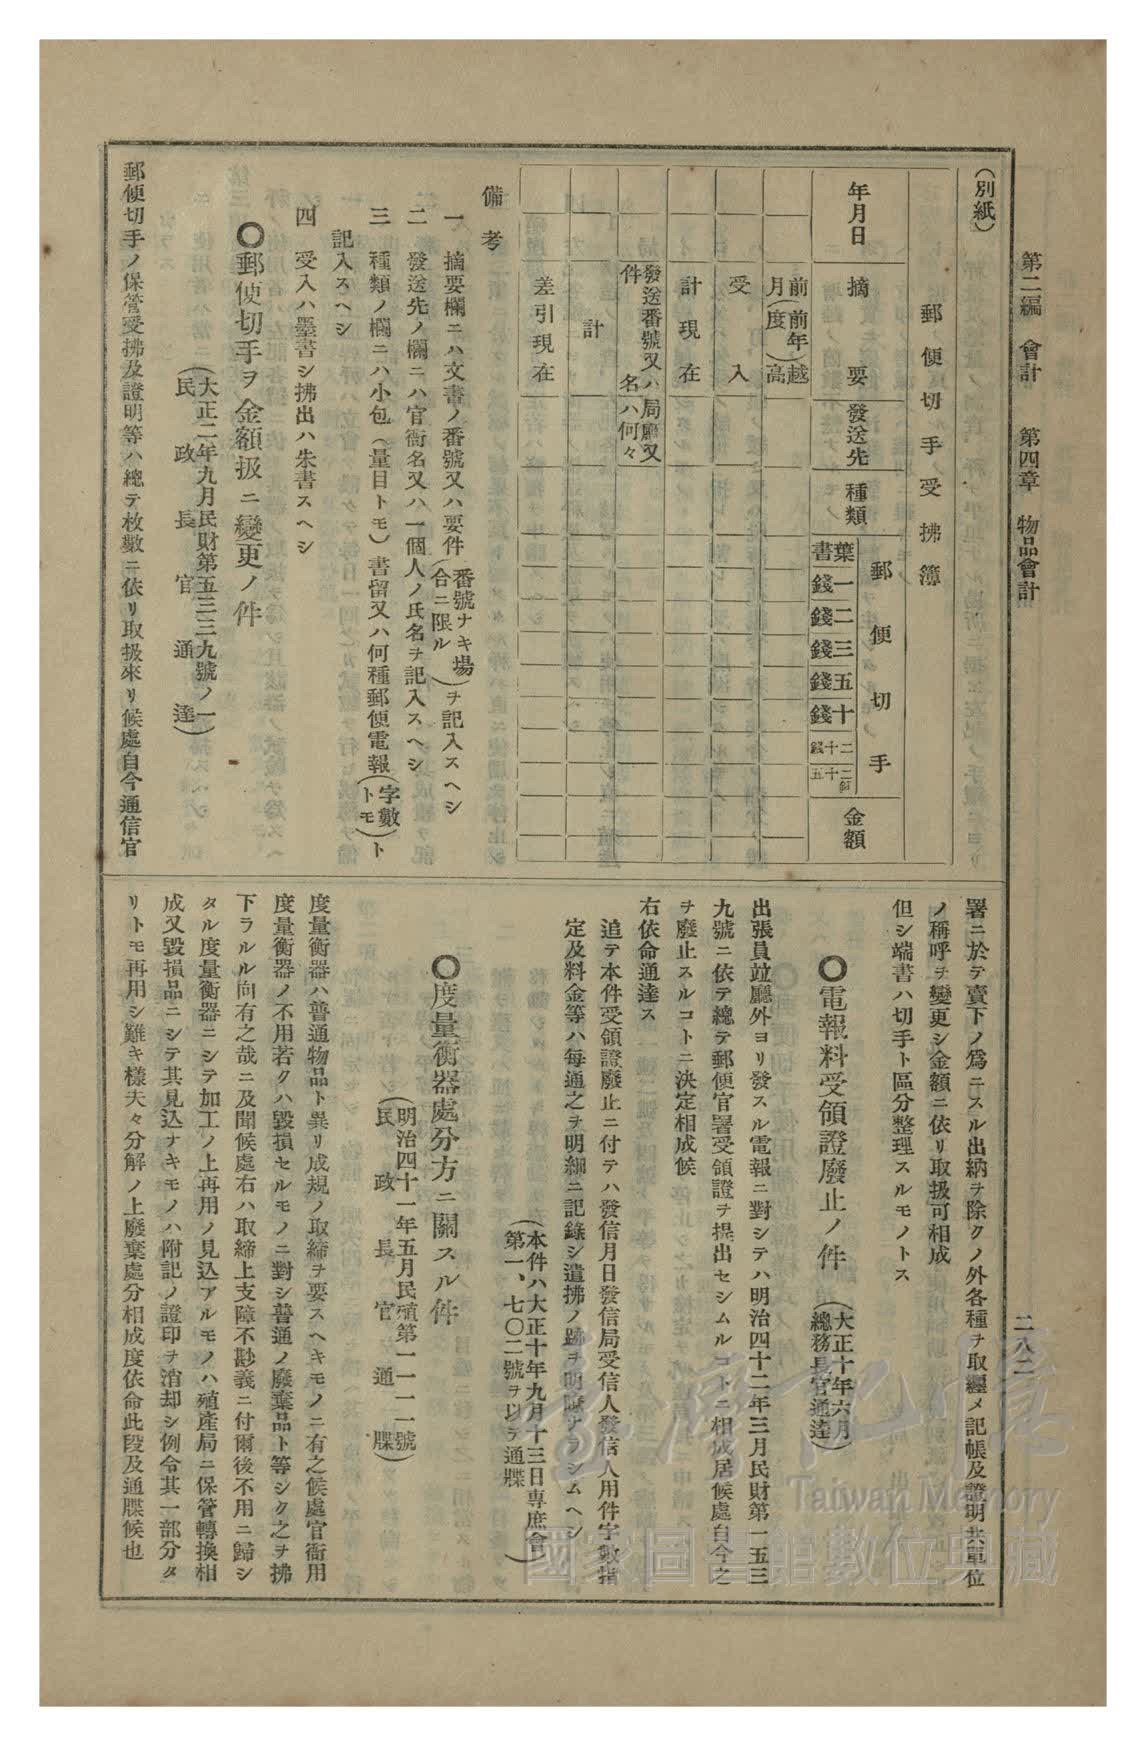 第二編　會計　第四章　物品會計
二八二
（別紙）
郵便切手受拂簿
年月日
摘要
發送先
種類
郵便切手
葉書
一錢
二錢
三錢
五錢
十錢
二十錢
二十五錢
金額
前月（前年度）越高
受入
計現在
發送番號又ハ件名
局廳又ハ何々
計
差引現在
備考
一　摘要欄ニハ文書ノ番號又ハ要件（番號ナキ場合ニ限ル）ヲ記入スヘシ
二　發送先ノ欄ニハ官衙名又ハ一個人ノ氏名ヲ記入スヘシ
三　種類ノ欄ニハ小包（量目トモ）書留又ハ何種郵便電報（字數トモ）ト
記入スヘシ
四　受入ハ墨書シ拂出ハ朱書スヘシ
○郵便切手ヲ金額扱ニ變更ノ件
（大正二年九月民財第五三三九號ノ一
民政長官通達）
郵便切手ノ保管受拂及證明等ハ總テ枚數ニ依リ取扱來リ候處自今通信官
署ニ於テ賣下ノ爲ニスル出納ヲ除クノ外各種ヲ取纒メ記帳及證明共單位
ノ稱呼ヲ變更シ金額ニ依リ取扱可相成
但シ端書ハ切手ト區分整理スルモノトス
○電報料受領證廢止ノ件
（大正十年六月
總務長官通達）
出張員竝廳外ヨリ發スル電報ニ對シテハ明治四十二年三月民財第一五三
九號ニ依テ總テ郵便官署受領證ヲ提出セシムルコトニ相成居候處自今之
ヲ廢止スルコトニ決定相成候
右依命通達ス
追テ本件受領證廢止ニ付テハ發信月日發信局受信人發信人用件字數指
定及料金等ハ每通之ヲ明細ニ記錄シ遣拂ノ跡ヲ明瞭ナラシムヘシ
（本件ハ大正十年九月十三日専庶會
第一、七〇二號ヲ以テ通牒）
○度量衡器處分方ニ關スル件
（明治四十一年五月民殖第一一一一號
民政長官通牒）
度量衡器ハ普通物品ト異リ成規ノ取締ヲ要スヘキモノニ有之候處官衙用
度量衡器ノ不用若クハ毀損セルモノニ對シ普通ノ廢棄品ト等シク之ヲ拂
下ラルル向有之哉ニ及聞候處右ハ取締上支障不尠義ニ付爾後不用ニ歸シ
タル度量衡器ニシテ加工ノ上再用ノ見込アルモノハ殖產局ニ保管轉換相
成又毀損品ニシテ其見込ナキモノハ附記ノ證印ヲ消却シ例令其一部分タ
リトモ再用シ難キ樣夫々分解ノ上廢棄處分相成度依命此段及通牒候也
臺灣記憶
Taiwan Memory
國家圖書館數位典藏